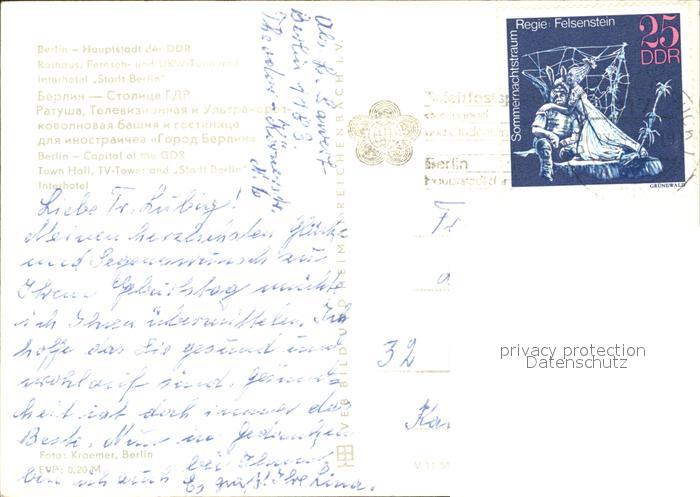 Berlin – Hauptstadt der DDR
Rathaus, Fernseh- und UKW-Turm und
Interhotel „Stadt Berlin"
Берлин — Столица ГДР
Ратуша, Телевизионная и Ультракорот-
коволновая башня и гостиница
для иностранцев «Город Берлин»
Berlin – Capital of the GDR
Town Hall, TV-Tower and „Stadt Berlin"
Interhotel
Liebe Fr. Lubig!
Meinen herzlichsten Glück
und Segenswunsch zu
Ihrem Geburtstag möchte
ich Ihnen übermitteln. Ich
hoffe das Sie gesund und
wohlauf sind. Gesund-
heit ist doch immer das
Beste. Nun in Gedanken
bin ich auch bei Ihnen
Es grüßt Ihre Lina.
Foto: Kraemer, Berlin
EVP: 0,20 M
Abs. L.
Berlin 1183
Theodor-Körnerstr.
N. 6
VEB BILD UND HEIM REICHENBACH I. V.
Weltfestspiele
der Jugend
und Studenten
Berlin
Hauptstadt d
Sommernachtstraum Regie: Felsenstein
25
DDR
GRÜNEWALD
Fr
32
Ka
privacy protection
Datenschutz